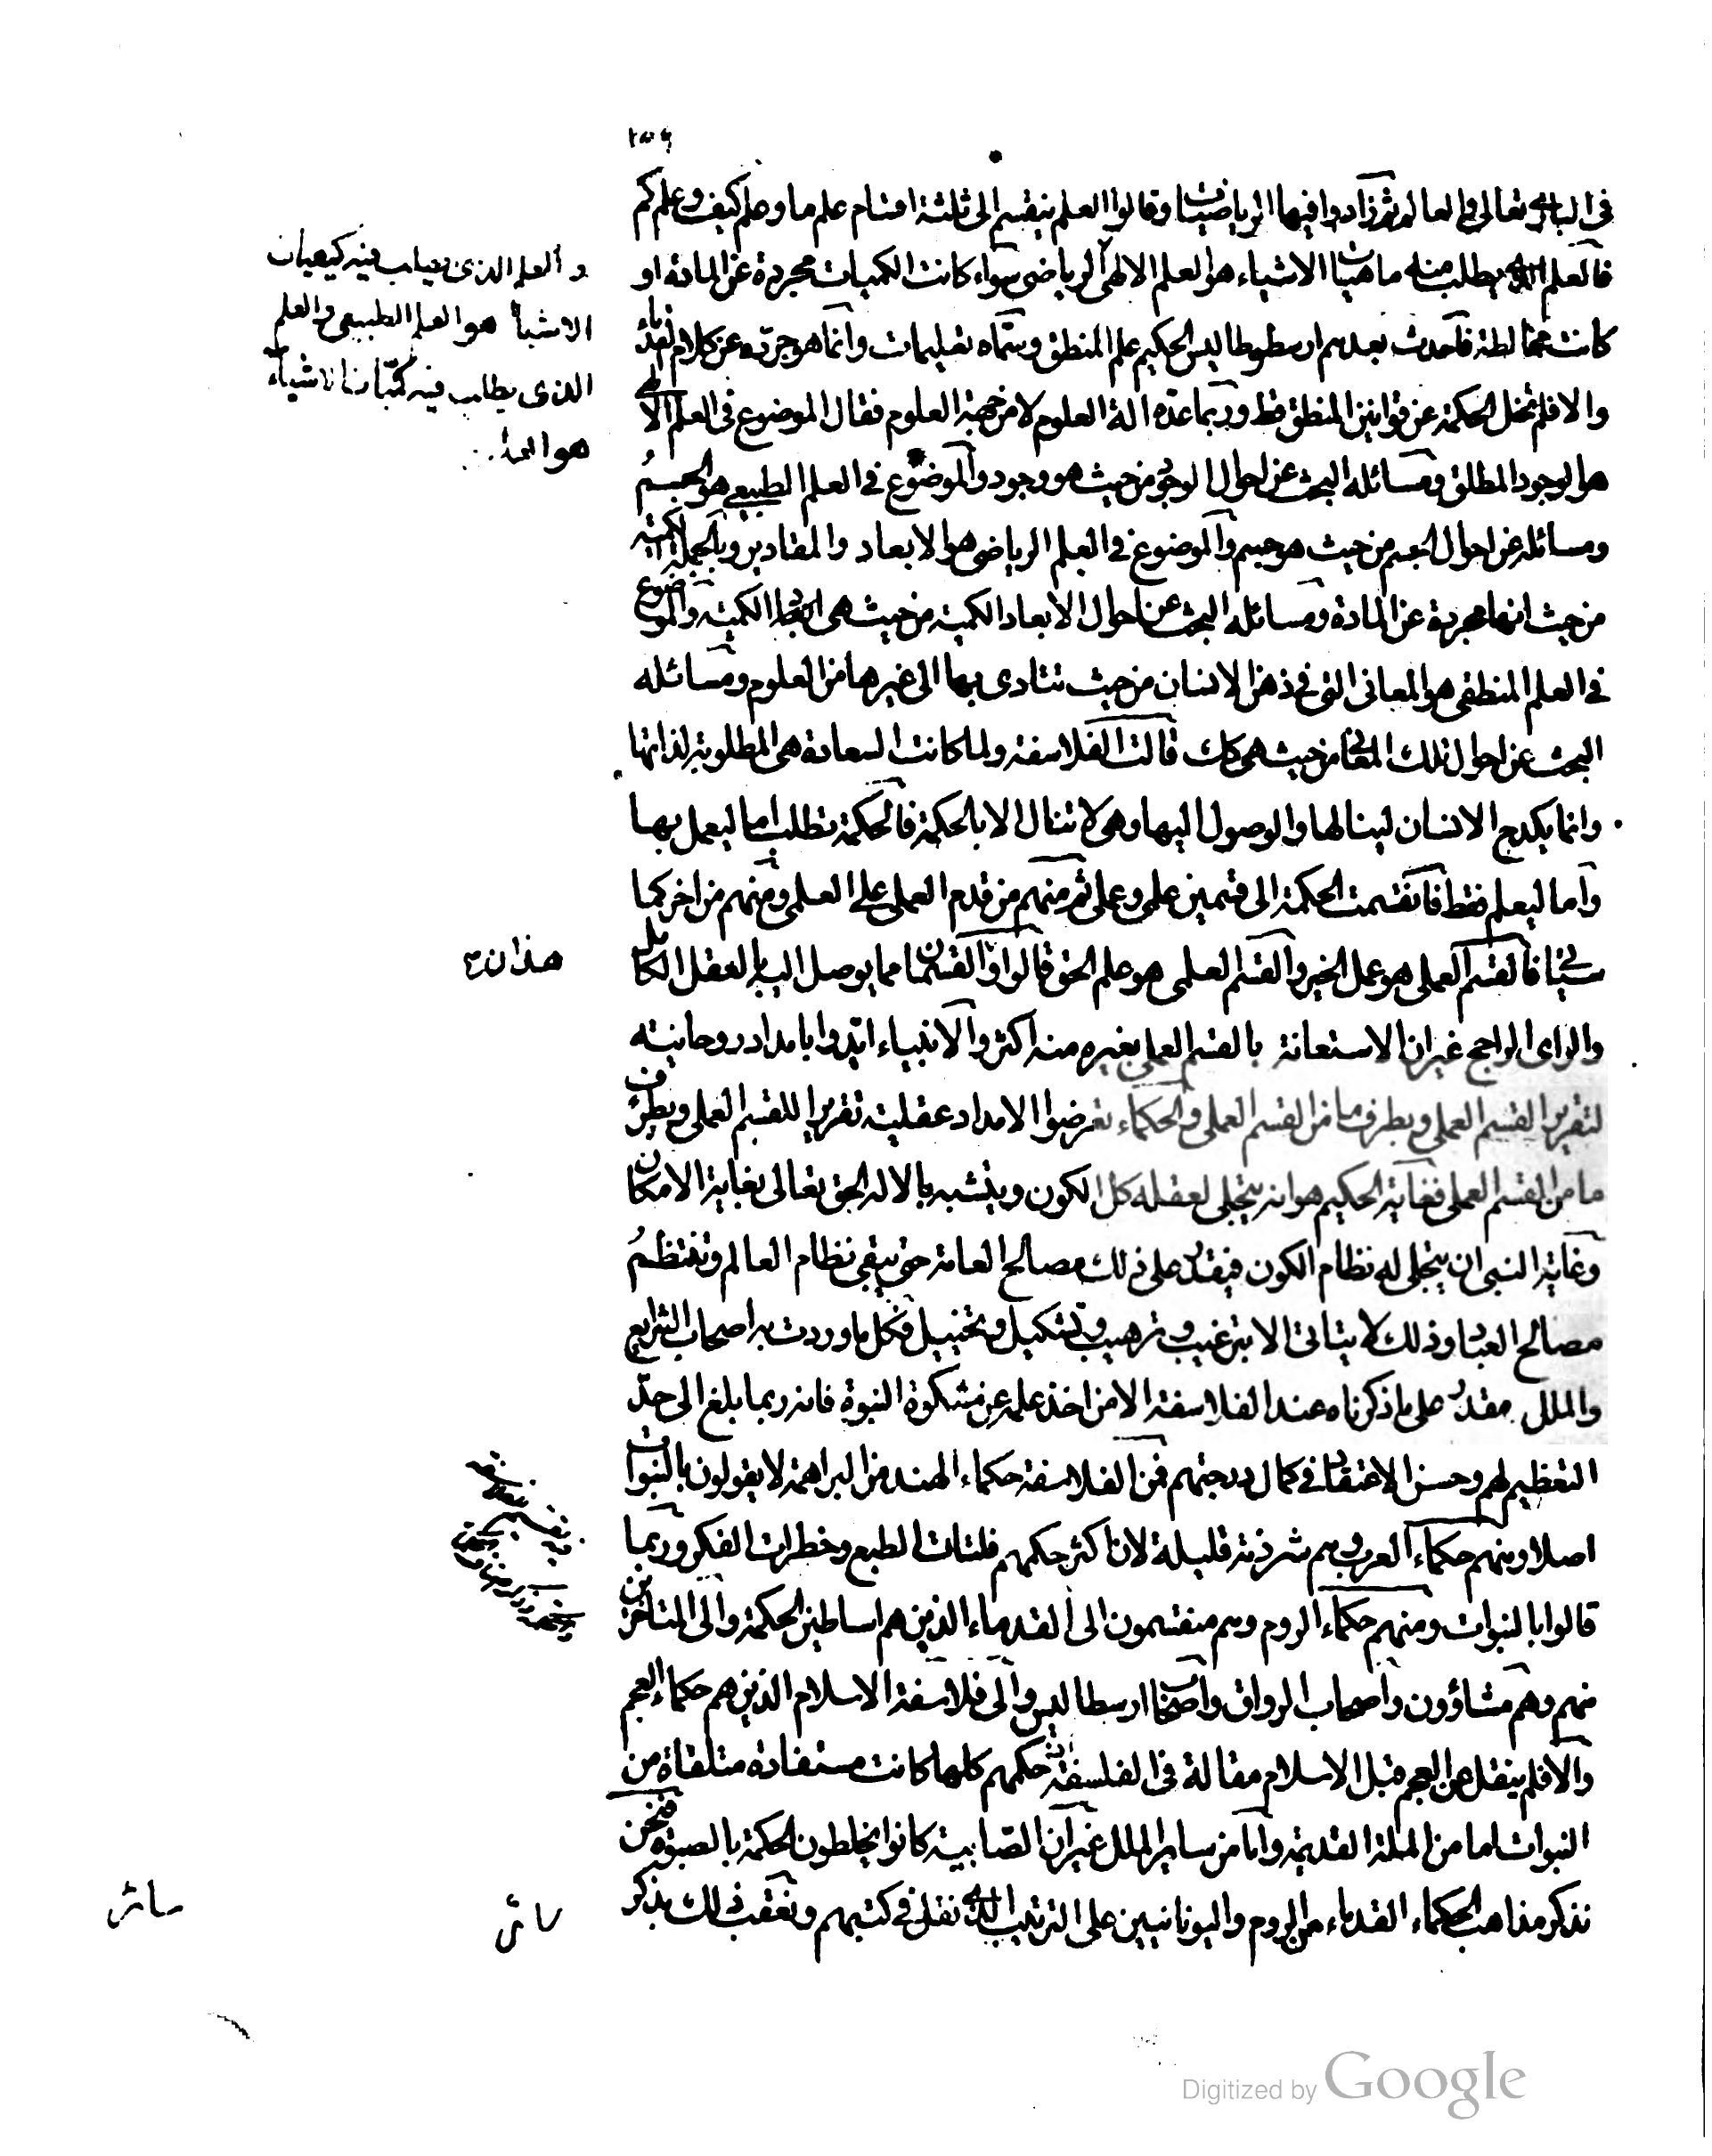 في الباري تعالى والعالم ثم زادوا فيها الرياضيات وقالوا العلم ينقسم الى ثلثة اقسام علم ما وعلم كيف وعلم كم
فالعلم الذي يطلب منه ماهيات الاشياء هو العلم الالهي الرياضي سواء كانت الكميات مجردة عن المادة او
كانت مخالطة فاحدث بعدهم ارسطوطاليس الحكيم علم المنطق وسماه تعليمات وانما هو جرده عن كلام القدماء
والا فلم تخل الحكمة عن قوانين المنطق قط وربما عده الة العلوم لا من جهة العلوم فقال الموضوع في العلم الالهي
هو الوجود المطلق ومسائله البحث عن احوال الوجود من حيث هو وجود والموضوع في العلم الطبيعي هو الجسم
ومسائله عن احوال الجسم من حيث هو جسم والموضوع في العلم الرياضي هو الابعاد والمقادير وبالجملة الكمية
من حيث انها مجردة عن المادة ومسائله البحث عن احوال الابعاد الكمية من حيث هي ابعاد الكمية والموضوع
في العلم المنطقي هو المعاني التي في ذهن الانسان من حيث تتادى بها الى غيرها من العلوم ومسائله
البحث عن احوال تلك المعاني من حيث هي كك قالت الفلاسفة ولما كانت السعادة هي المطلوبة لذاتها
وانما يكدح الانسان لينالها والوصول اليها وهي لا تنال الا بالحكمة فالحكمة تطلب اما ليعمل بها
واما ليعلم فقط فانقسمت الحكمة الى قسمين علمي وعملي ثم منهم من قدم العملي على العلمي ومنهم من اخر كما
سيأتي فالقسم العملي هو عمل الخير والقسم العلمي هو علم الحق قالوا والقسمان مما يوصل اليه بالعقل الكامل
والراي الراجح غير ان الاستعانة بالقسم العملي بغيره منه اكثر والانبياء ايدوا بامداد روحانية
لتقرير القسم العملي وبطرف ما من القسم العملي والحكماء تعرضوا الامداد عقلية تقريرا للقسم العملي وبطرف
ما من القسم العملي فغاية الحكيم هو انه يتجلى لعقله كل الكون ويتشبه بالاله الحق تعالى بغاية الامكان
وغاية النبي ان يتجلى له نظام الكون فيقدر على ذلك مصالح العامة حتى يبقى نظام العالم وتنتظم
مصالح العباد وذلك لا يتاتى الا بترغيب وترهيب وتشكيل وتخييل فكل ما وردت به اصحاب الشرايع
والملل مقدر على ما ذكرناه عند الفلاسفة الا من اخذ علمه عن مشكوة النبوة فانه ربما بلغ الى حد
التعظيم لهم وحسن الاعتقاد في كمال درجتهم فمن الفلاسفة حكماء الهند من البراهمة لا يقولون بالنبوات
اصلا ومنهم حكماء العرب وهم شرذمة قليلة لان اكثر حكمهم فلتات الطبع وخطرات الفكر وربما
قالوا بالنبوات ومنهم حكماء الروم وهم منقسمون الى القدماء الذين هم اساطين الحكمة والى المتاخرين
منهم وهم مشاؤون واصحاب الرواق واصحاب ارسطاليس والى فلاسفة الاسلام الذين هم حكماء العجم
والا فلم ينقل عن العجم قبل الاسلام مقالة في الفلسفة حكمهم كلها كانت مستفادة متلقاة من
النبوات اما من الملة القديمة واما من ساير الملل غير ان الصابية كانوا يخلطون الحكمة بالصبوة فنحن
نذكر مذاهب الحكماء القدماء من الروم واليونانيين على الترتيب الذي نقل في كتبهم ونعقب ذلك بذكر
سائر
سائر
و العلم الذي يطلب فيه كيفيات
الاشيا هو العلم الطبيعي والعلم
الذي يطلب فيه كميات الاشياء
هو
هذان
Digitized by Google